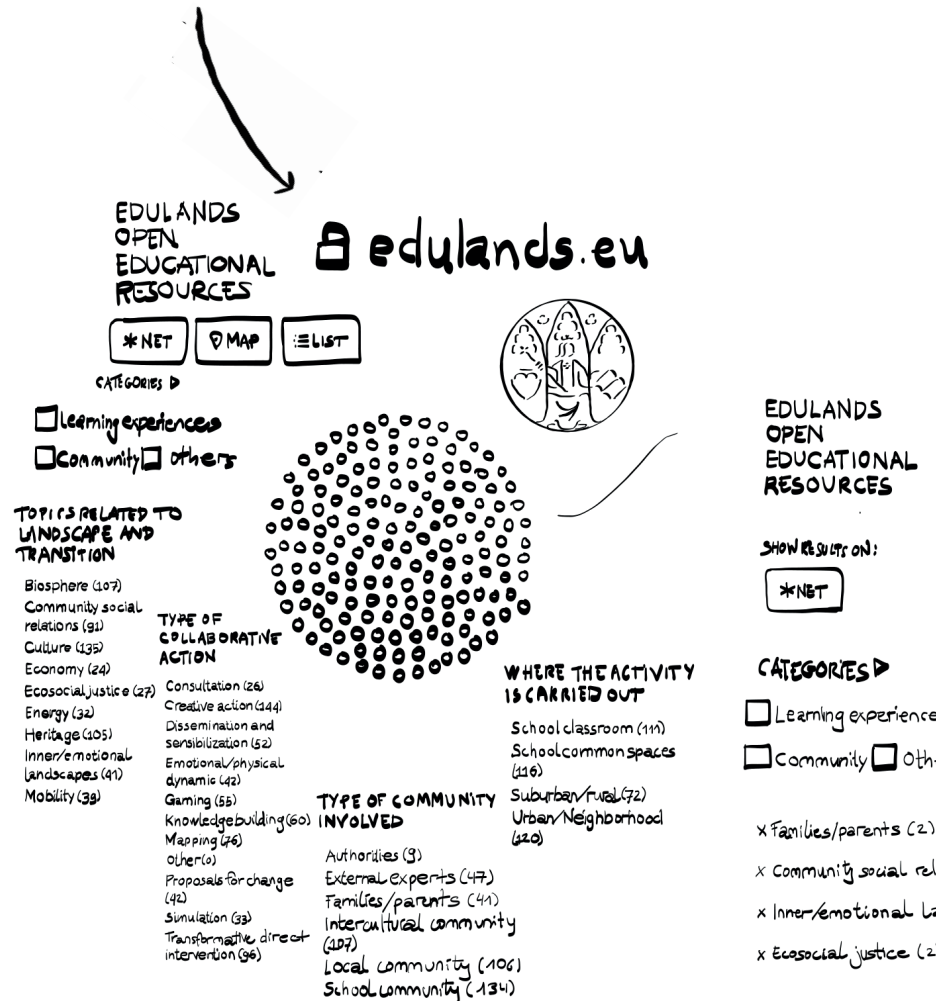 EDULANDS
OPEN
EDUCATIONAL
RESOURCES
edulands.eu
NET
MAP
LIST
CATEGORIES
Learning experiences
Community
Others
TOPICS RELATED TO
LANDSCAPE AND
TRANSITION
Biosphere (107)
Community social
relations (91)
Culture (135)
Economy (24)
Ecosocial justice (27)
Energy (32)
Heritage (105)
Inner/emotional
landscapes (41)
Mobility (39)
TYPE OF
COLLABORATIVE
ACTION
Consultation (26)
Creative action (144)
Dissemination and
sensibilization (52)
Emotional/physical
dynamic (42)
Gaming (55)
Knowledge building (60)
Mapping (76)
Other (0)
Proposals for change
(42)
Simulation (33)
Transformative direct
intervention (96)
TYPE OF COMMUNITY
INVOLVED
Authorities (9)
External experts (47)
Families/parents (41)
Intercultural community
(107)
Local community (106)
School community (134)
WHERE THE ACTIVITY
IS CARRIED OUT
School classroom (111)
School common spaces
(116)
Suburban/rural (72)
Urban/Neighborhood
(120)
EDULANDS
OPEN
EDUCATIONAL
RESOURCES
SHOW RESULTS ON:
NET
CATEGORIES
Learning experience
Community Oth
x Families/parents (2)
x Community social rel
x Inner/emotional La
x Ecosocial justice (2